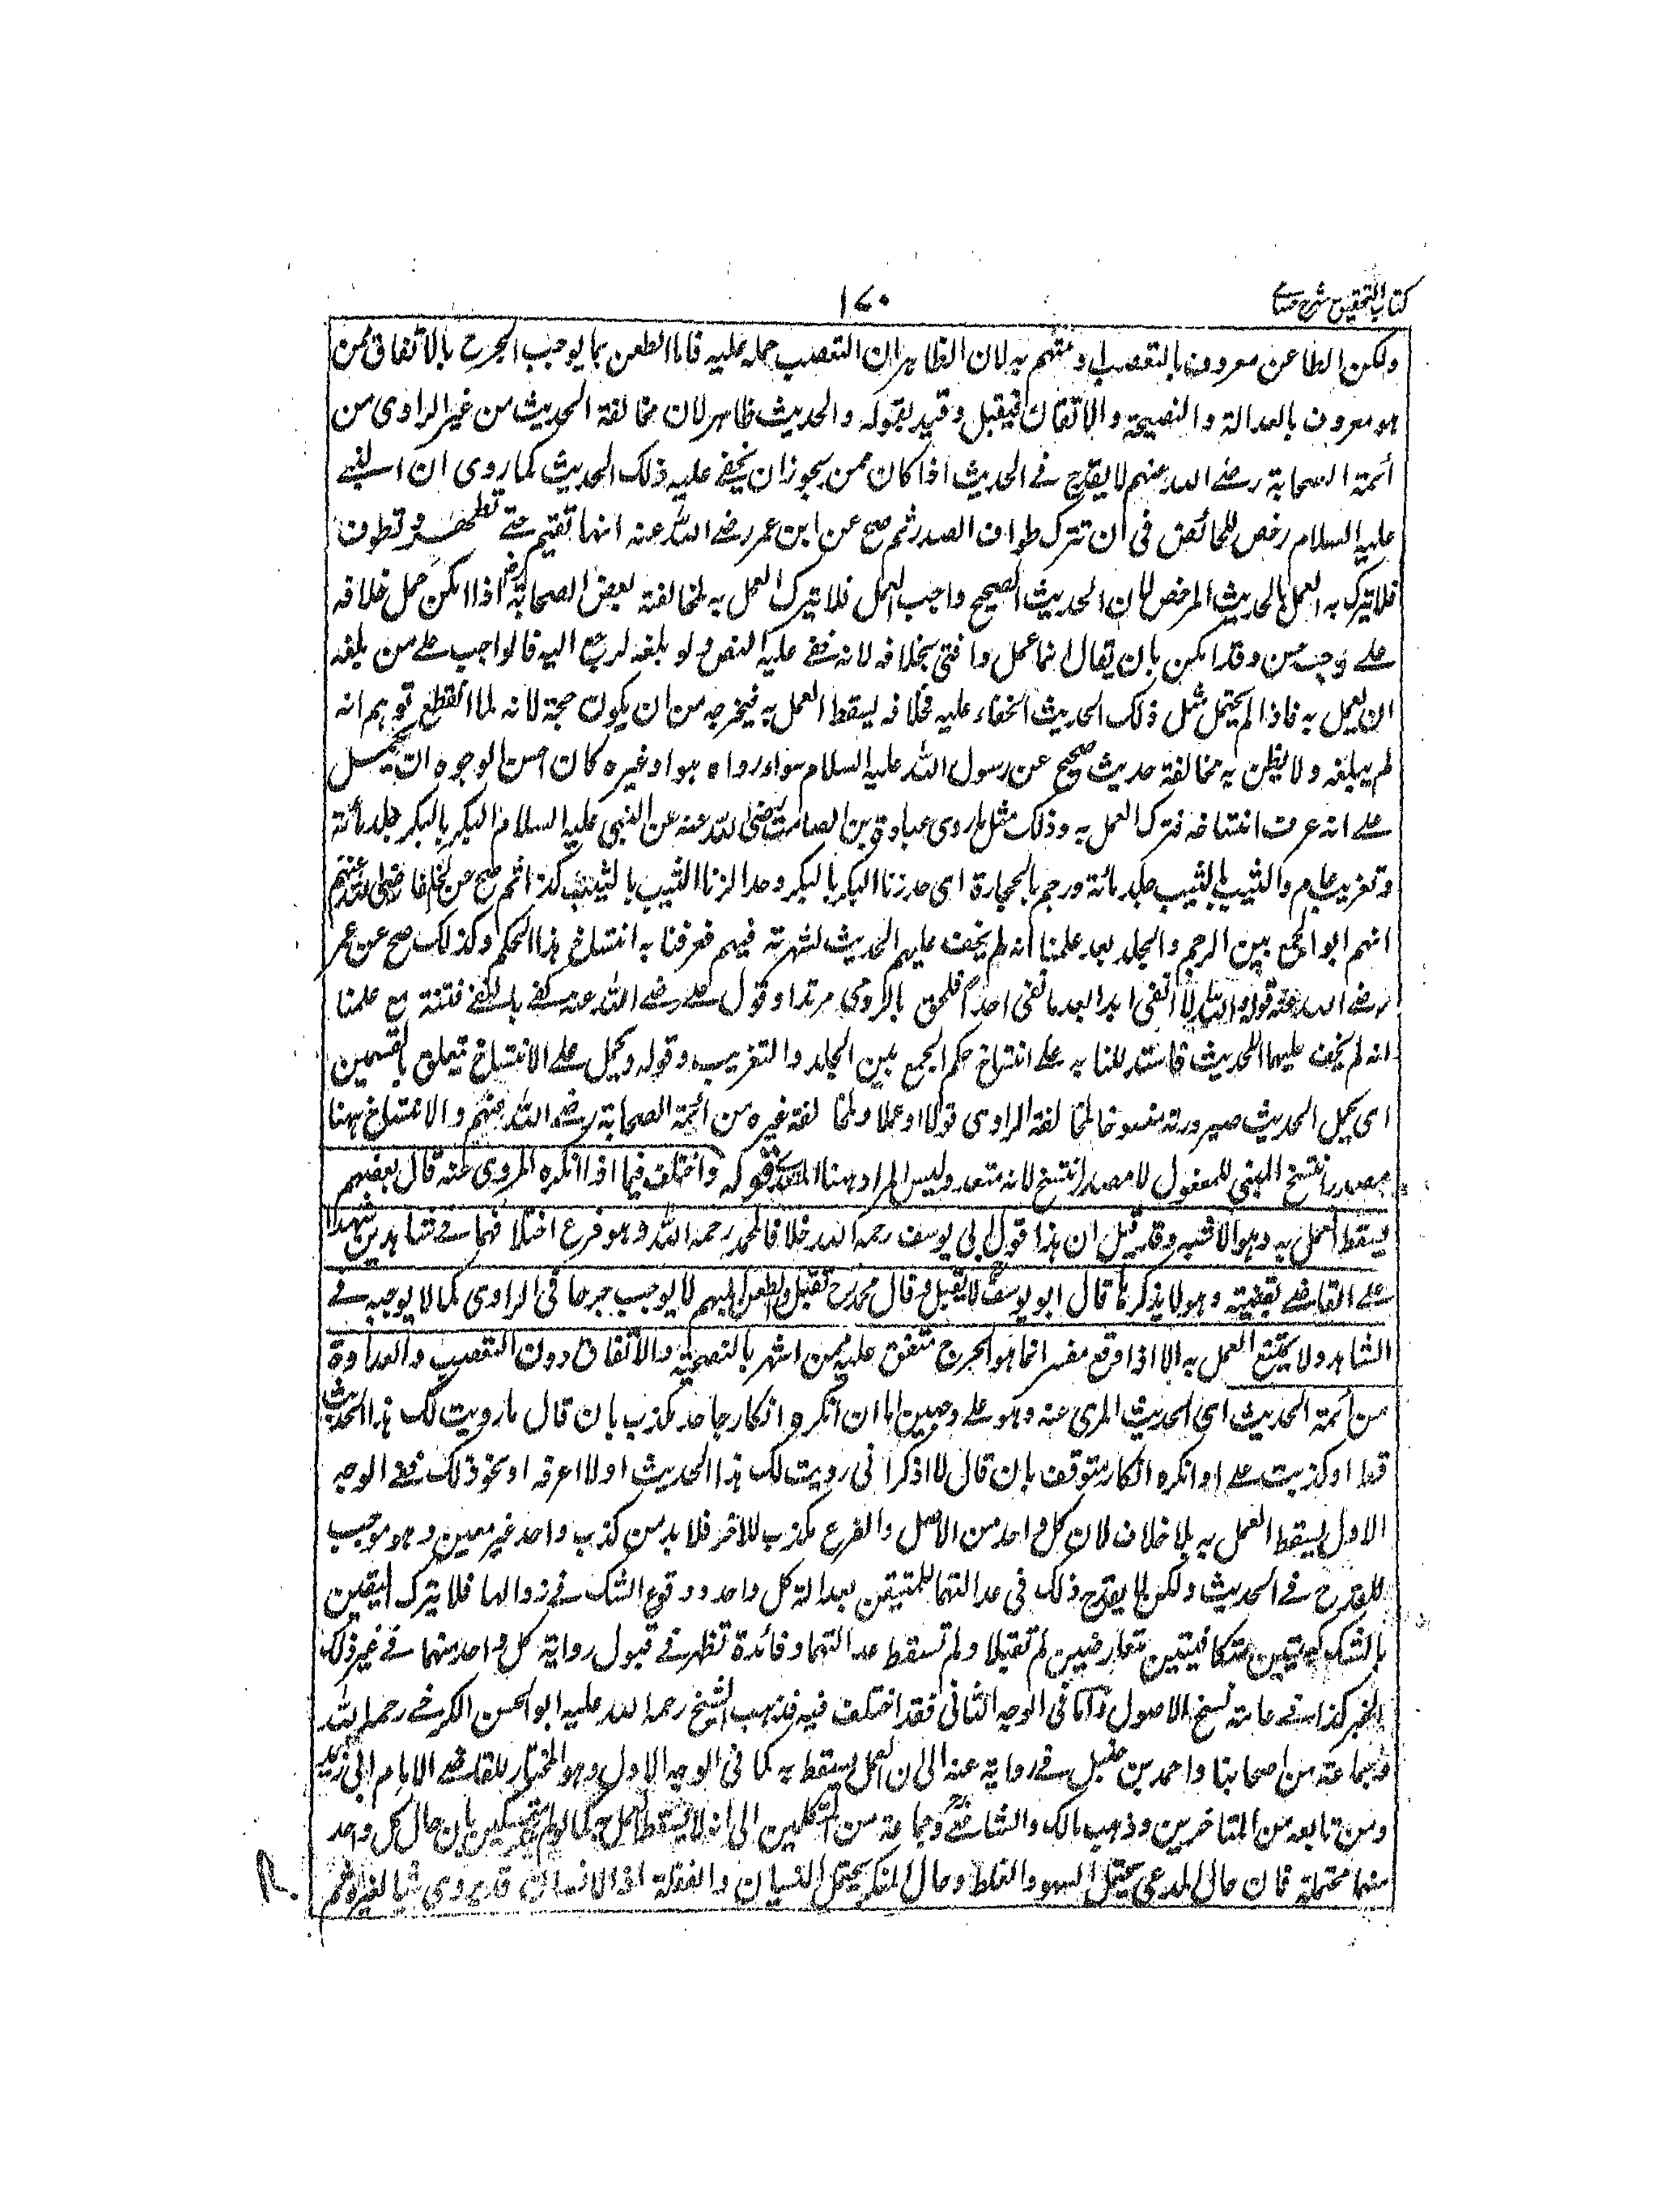 كتاب التحقيق شرح حسامى
١٧٠
ولكن الطاعن معروف بالتعصب او متهم به لان الظاهر ان التعصب حمله عليه فاما الطعن بما يوجب الجرح بالاتفاق ممن
هو معروف بالعدالة والنصيحة والاتقان فيقبل وقيد بقوله والحديث ظاهر لان مخالفة الحديث من غير الراوى من
ائمة الصحابة رضے الله عنهم لا يقدح فے الحديث اذا كان ممن يجوز ان يخفے عليه ذلك الحديث كما روى ان النبے
عليه السلام رخص للحائض فى ان تترك طواف الصدر ثم صح عن ابن عمر رضے الله عنه انها تقيم حتے تطهر وتطوف
فلا يترك به العمل بالحديث المرخص لان الحديث الصحيح واجب العمل فلا يترك العمل به لمخالفة بعض الصحابة رض اذا امكن حمل خلافه
علے وجه حسن وقد امكن بان يقال انما عمل وافتى بخلافه لانه خفے عليه النص ولو بلغه لرجع اليه فالواجب علے من بلغه
ان يعمل به فاذا لم يحتمل مثل ذلك الحديث الخفاء عليه فخلافه يسقط العمل به فيخرجه من ان يكون حجة لانه لما انقطع توهم انه
لم يبلغه ولا يظن به مخالفة حديث صحيح عن رسول الله عليه السلام سواء رواه هو او غيره كان احسن الوجوه ان يحمل
علے انه عرف انتساخه فترك العمل به وذلك مثل ما روى عبادة بن الصامت رضى الله عنه عن النبى عليه السلام البكر بالبكر جلد مائة
وتغريب عام والثيب بالثيب جلد مائة ورجم بالحجارة اى حد زنا البكر بالبكر وحد زنا الثيب بالثيب كذا ثم صح عن الخلفاء رضى الله عنهم
انهم ابوا الجمع بين الرجم والجلد بعد علمنا انه لم يخف عليهم الحديث لشهرته فيهم فعرفنا به انتساخ هذا الحكم وكذلك صح عن عمر
رضے الله عنه قوله والله لا انفى ابدا بعد ما نفى احدا فلحق بالروم مرتدا وقول علے رضے الله عنه كفے بالنفے فتنة مع علمنا
انه لم يخف عليهما الحديث فاستدللنا به علے انتساخ حكم الجمع بين الجلد والتغريب وقوله ويحمل علے الانتساخ متعلق بالقسمين
اى يحمل الحديث صيرورته منسوخا لمخالفة الراوى قولا او عملا ولمخالفة غيره من ائمة الصحابة رضے الله عنهم والانتساخ ههنا
مصدر انتسخ المبنى للمفعول لا مصدر انتسخ لانه متعد وليس المراد ههنا المتعدے قوله واختلف فيما اذا انكره المروى عنه قال بعضهم
يسقط العمل به وهو الاشبه وقد قيل ان هذا قول ابى يوسف رحمه الله خلافا لمحمد رحمه الله وهو فرع اختلافهما فے شاهدين شهدا
علے القاضے بقضيته وهو لا يذكرها قال ابو يوسف رح لا تقبل وقال محمد رح تقبل والطعن المبهم لا يوجب جرحا فى الراوى كما لا يوجبه فے
الشاهد ولا يمتنع العمل به الا اذا وقع مفسرا بما هو الجرح متفق عليه ممن اشتهر بالنصيحة والاتقان دون التعصب والعداوة
من ائمة الحديث اى الحديث المروى عنه وهو علے وجهين اما ان انكره انكار جاحد مكذب بان قال ما رويت لك هذا الحديث
قط او كذبت علے او انكره انكار متوقف بان قال لا اذكر انى رويت لك هذا الحديث او لا اعرفه او نحو ذلك ففے الوجه
الاول يسقط العمل به بلا خلاف لان كل واحد من الاصل والفرع مكذب للآخر فلا بد من كذب واحد غير معين وهو موجب
للقدح فے الحديث ولكن لا يقدح ذلك فى عدالتهما للتيقن بعدالة كل واحد ووقوع الشك فے زوالها فلا يترك اليقين
بالشك كبينتين متكافيتين متعارضتين لم تقبلا ولم تسقط عدالتهما وفائدة تظهر فے قبول رواية كل واحد منهما فے غير ذلك
الخبر كذا فے عامة نسخ الاصول واما فى الوجه الثانى فقد اختلف فيه فذهب الشيخ رحمة الله عليه ابو الحسن الكرخے رحمه الله
وجماعة من اصحابنا واحمد بن حنبل فے رواية عنه الى ان العمل يسقط به كما فى الوجه الاول وهو المختار للقاضے الامام ابى زيد
ومن تابعه من المتاخرين وذهب مالك والشافعے رح وجماعة من المتكلمين الى انه لا يسقط العمل به كما لو لم ينكر بان حال كل واحد
منهما محتملة فان حال المدعى يحتمل السهو والغلط وحال المنكر يحتمل النسيان والغفلة اذ الانسان قد يروى شيا لغيره ثم